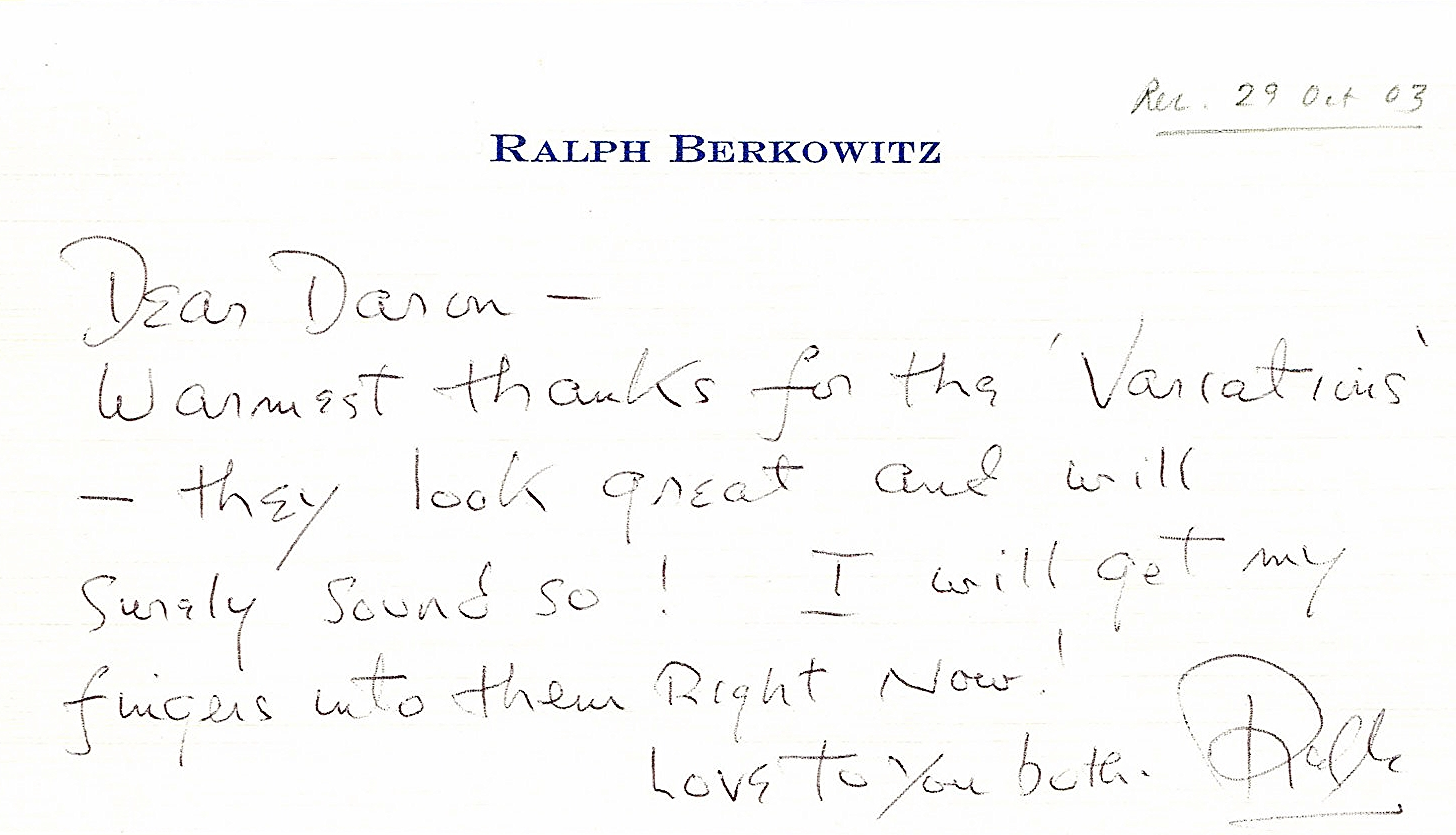 Rec. 29 Oct 03
RALPH BERKOWITZ
Dear Daron —
Warmest thanks for the 'Variations'
— they look great and will
surely sound so! I will get my
fingers into them Right Now!
Love to you both. Ralph